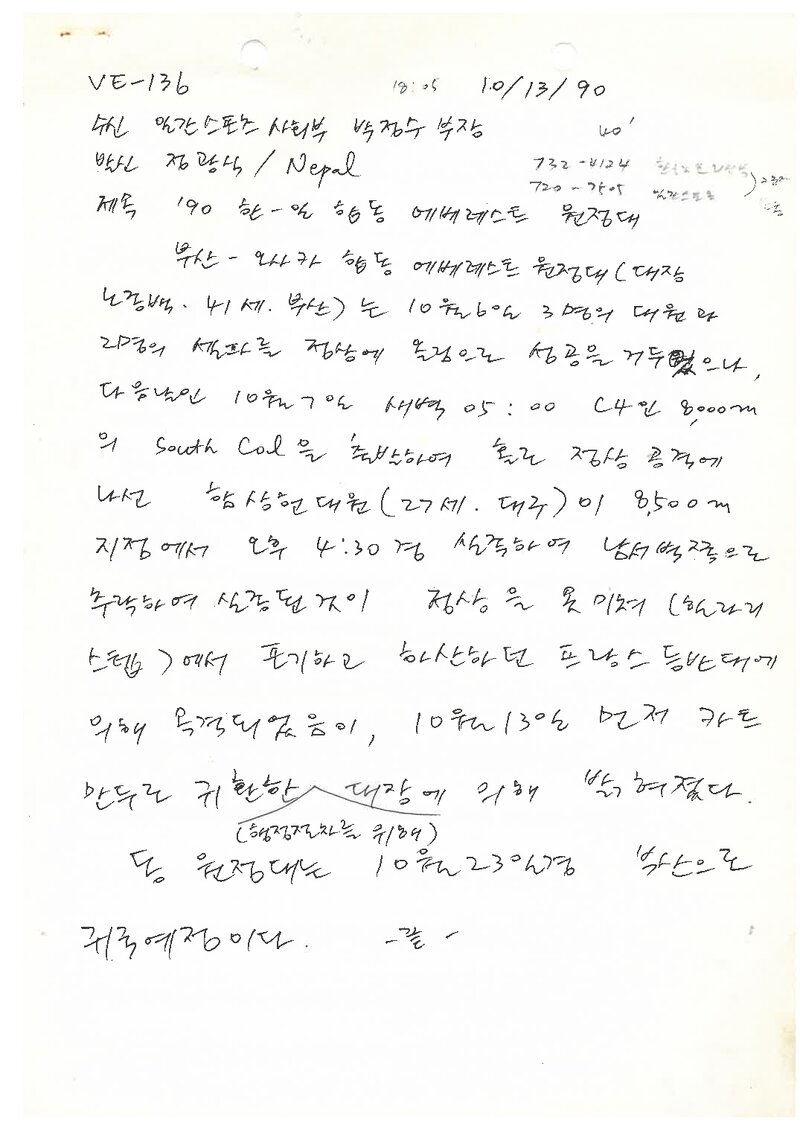 VE-136 18:05 10/13/90
수신 일간스포츠 사회부 박정수 부장 40'
발신 정광식 / Nepal 732-4124
제목 '90 한-일 합동 에베레스트 원정대 720-7505 일간스포츠
부산-오사카 합동 에베레스트 원정대(대장
노정백. 41세. 부산)는 10월 6일 3명의 대원과
2명의 셀파를 정상에 올림으로 성공을 거두었으나,
다음날인 10월 7일 새벽 05:00 C4인 8,000m
의 South Col을 출발하여 홀로 정상 공격에
나선 함상헌대원(27세. 대구)이 8,500m
지점에서 오후 4:30경 실족하여 남서벽쪽으로
추락하여 실종된것이 정상을 못미쳐 (힐라리
스텝)에서 포기하고 하산하던 프랑스 등반대에
의해 목격되었음이, 10월 13일 먼저 카트
만두로 귀환한 대장에 의해 밝혀졌다.
(행정절차를 위해)
동 원정대는 10월 23일경 부산으로
귀국예정이다. -끝-